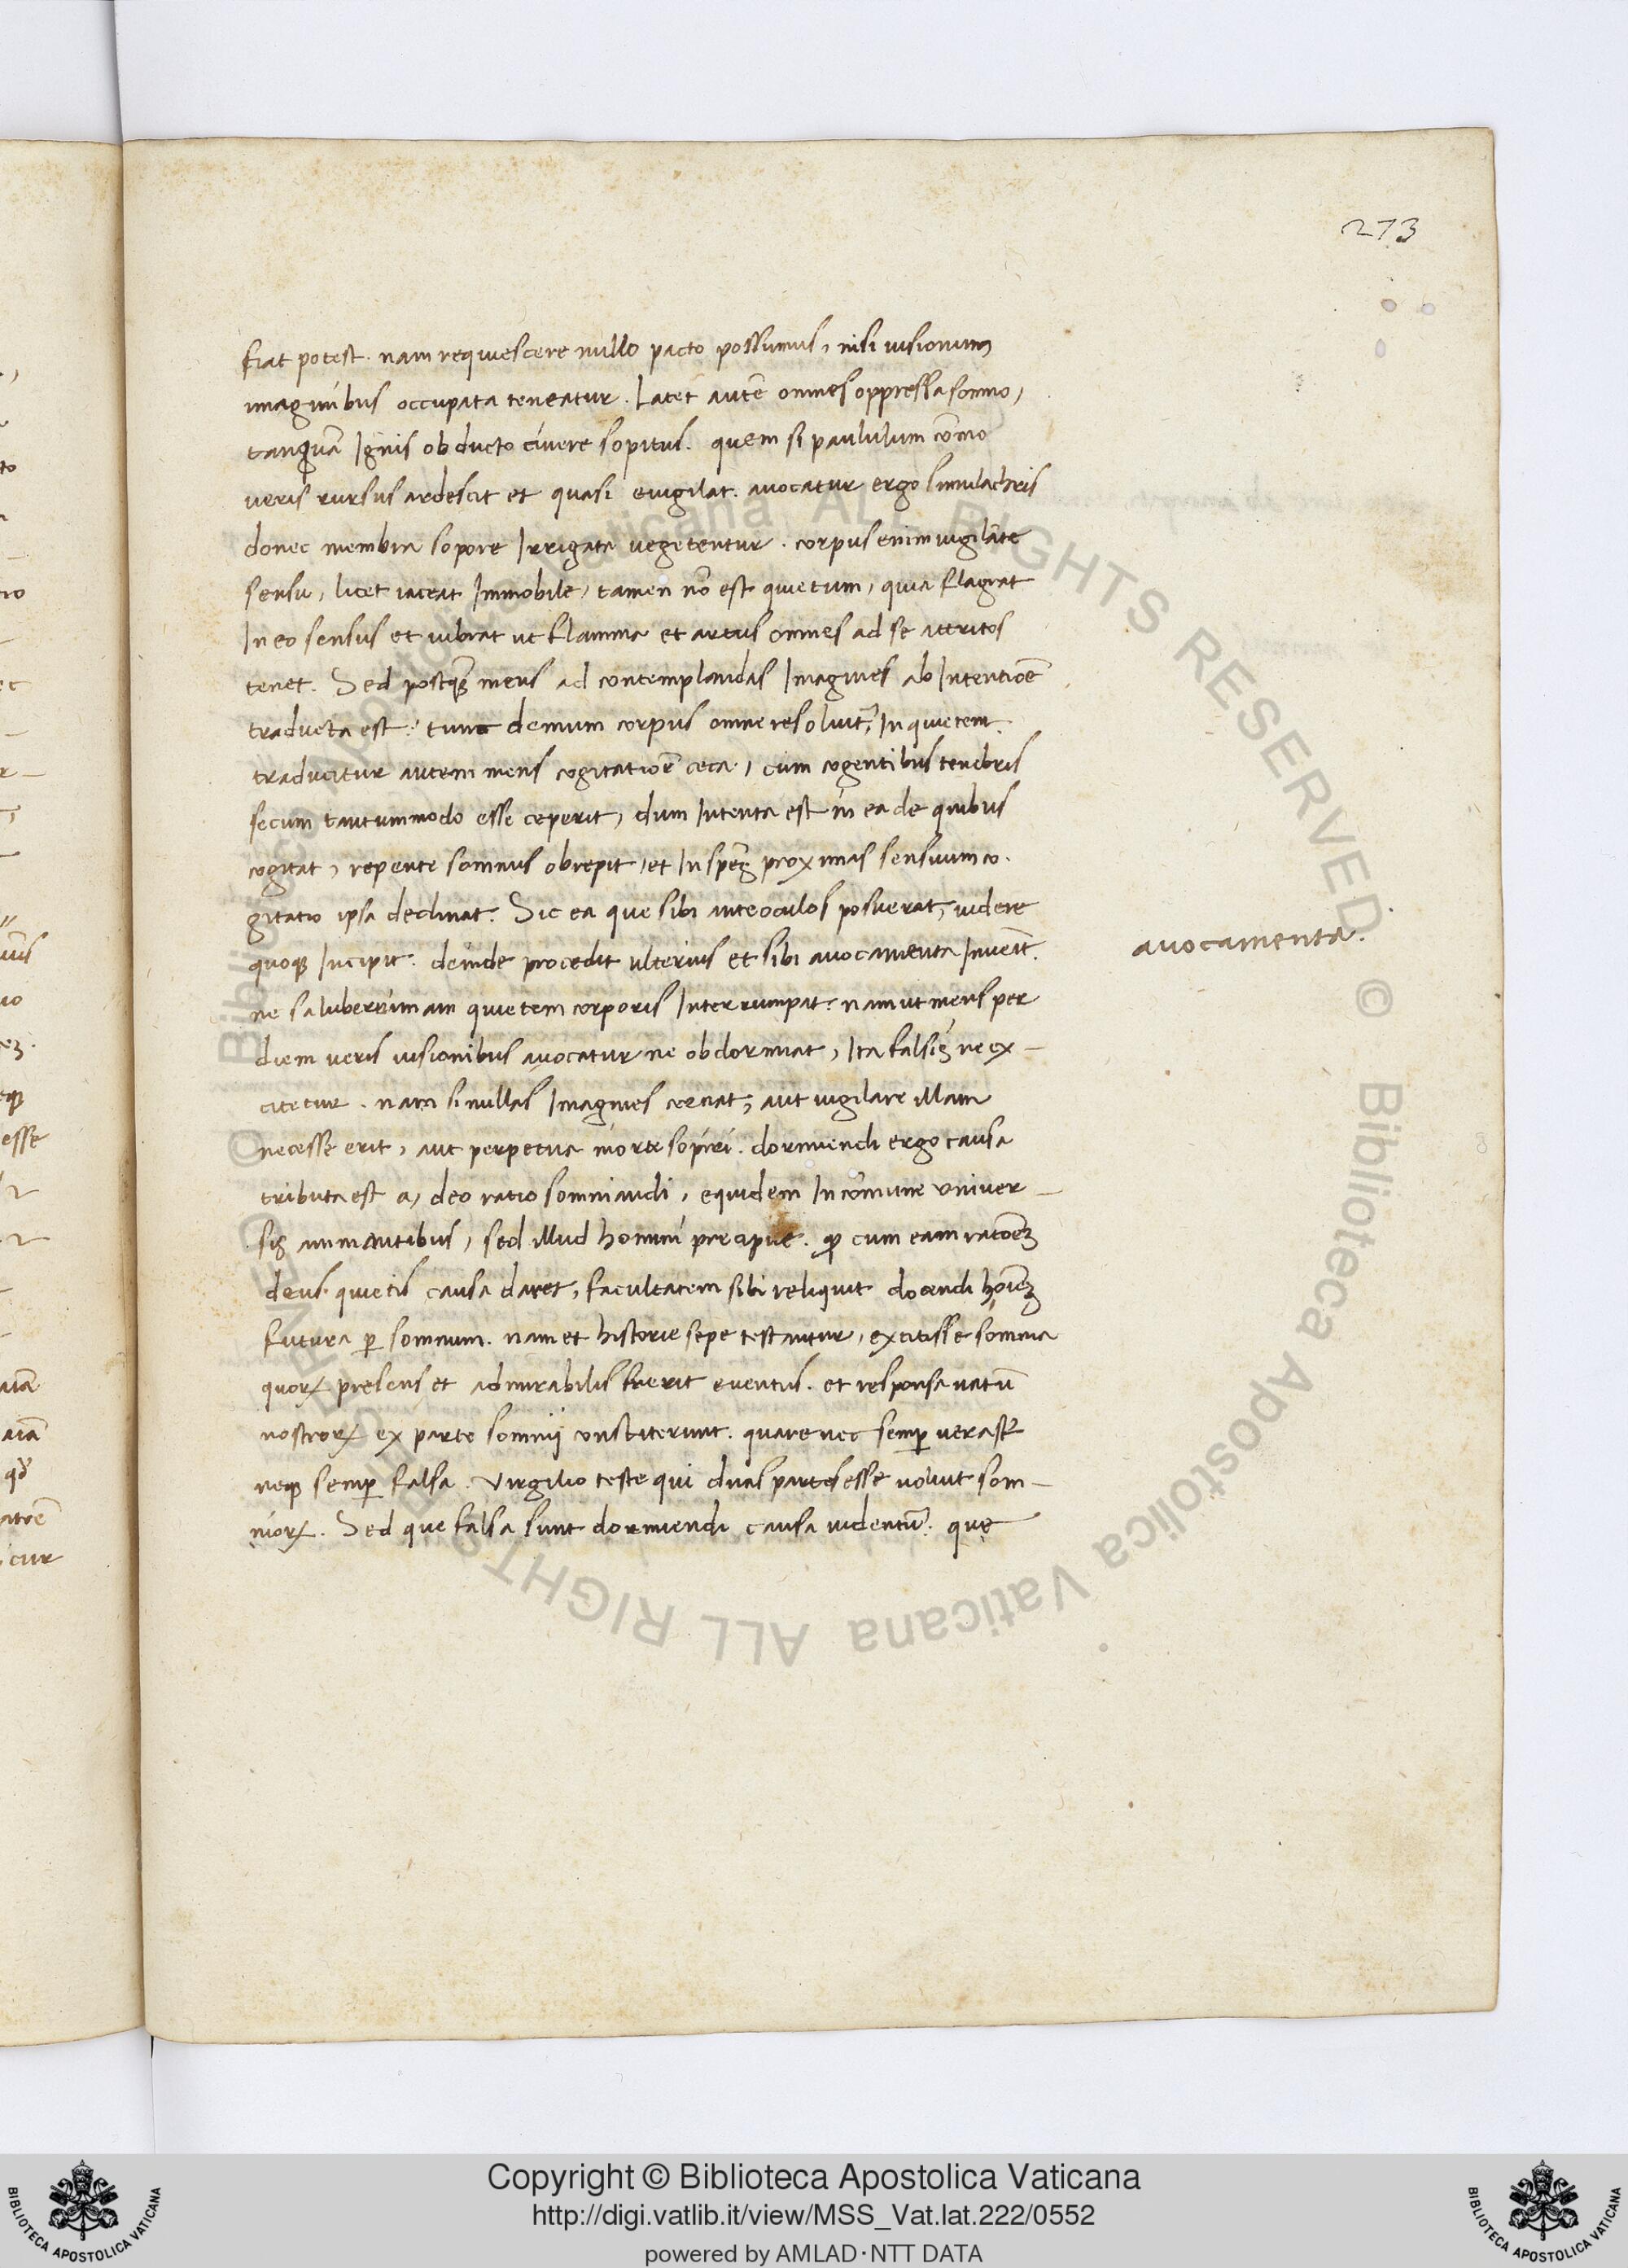 273
fiat potest. nam requiescere nullo pacto possumus, nisi visionum
imaginibus occupata teneatur. Latet autẽ omnes oppressa somno,
tanquã Ignis obducto cinere sopitus. quem si paululum cõmo
veris rursus ardescit et quasi evigilat. avocatur ergo simulachris
donec membra sopore Irrigata vegetentur. corpus enim vigilãte
sensu, licet iaceat Immobile, tamen nõ est quietum, quia flagrat
In eo sensus et vibrat ut flamma et artus omnes ad se attritos
tenet. Sed postqȝ mens ad contemplandas Imagines ab Intentiõe
traducta est: tunc demum corpus omne resolvit̃, In quietem.
traducitur autem mens cogitatiõe ceca, cum cogentibus tenebris
secum tantummodo esse ceperit, dum Intenta est in ea de quibus
cogitat, repente somnus obrepit, et In spẽȝ proximas sensuum co.
gitatio ipsa declinat. Sic ea que sibi ante oculos posuerat, videre
quoqꝫ Incipit. deinde procedit ulterius et sibi avocamenta Invenĩt.
avocamenta.
ne saluberrimam quietem corporis Interrumpat. nam ut mens per
diem veris visionibus avocatur ne obdormiat, Ita falsiȝ ne ex—
citetur. nam si nullas Imagines cernat, aut vigilare illam
necesse erit, aut perpetua morte sopiri. dormiendi ergo causa
tributa est a, deo ratio somniandi, equidem In cõmune univer—
siȝ animantibus, sed illud hominĩ precipue. ꝙ cum eam ratõeȝ
deus quietis causa daret, facultatem sibi reliquit docendi hoĩeȝ
futura ꝑ somnum. nam et historie sepe testantur, extitisse somnia
quoꝝ presens et admirabilis fuerit eventus. et responsa vatũ
nostroꝝ ex parte somnij constiterunt. quare nec semꝑ vera sũt
neqꝫ semꝑ falsa. Virgilio teste qui duas partes esse voluit som—
nioꝝ. Sed que falsa sunt dormiendi causa videntũ. quę
Copyright © Biblioteca Apostolica Vaticana
http://digi.vatlib.it/view/MSS_Vat.lat.222/0552
powered by AMLAD·NTT DATA
BIBLIOTECA APOSTOLICA VATICANA
BIBLIOTECA APOSTOLICA VATICANA
© Biblioteca Apostolica Vaticana ALL RIGHTS RESERVED © Biblioteca Apostolica Vaticana ALL RIGHTS RESERVED